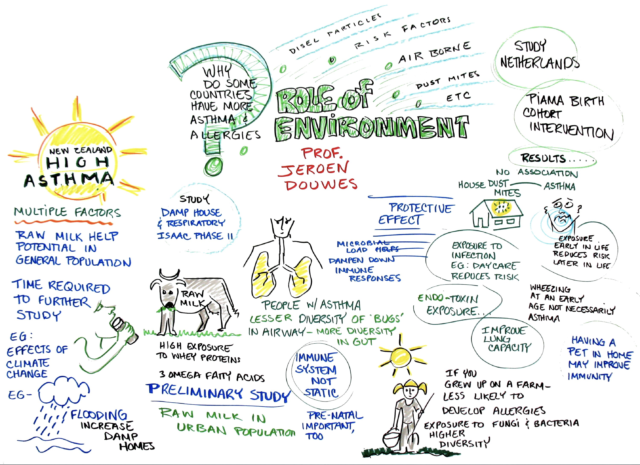 WHY
DO SOME
COUNTRIES
HAVE MORE
ASTHMA &
ALLERGIES
DISEL PARTICLES
RISK FACTORS
AIR BORNE
DUST MITES
ETC
ROLE OF
ENVIRONMENT
PROF.
JEROEN
DOUWES
STUDY
NETHERLANDS
PIAMA BIRTH
COHORT
INTERVENTION
RESULTS.....
NO ASSOCIATION
HOUSE DUST
MITES
ASTHMA
NEW ZEALAND
HIGH
ASTHMA
MULTIPLE FACTORS
RAW MILK HELP
POTENTIAL IN
GENERAL POPULATION
TIME REQUIRED
TO FURTHER
STUDY
EG:
EFFECTS OF
CLIMATE
CHANGE
EG-
FLOODING
INCREASE
DAMP
HOMES
STUDY
DAMP HOUSE
& RESPIRATORY
ISAAC PHASE II
RAW
MILK
HIGH EXPOSURE
TO WHEY PROTEINS
3 OMEGA FATTY ACIDS
PRELIMINARY STUDY
RAW MILK IN
URBAN POPULATION
PEOPLE W/ ASTHMA
LESSER DIVERSITY OF 'BUGS'
IN AIRWAY - MORE DIVERSITY
IN GUT
IMMUNE
SYSTEM
NOT
STATIC
PRE-NATAL
IMPORTANT,
TOO
PROTECTIVE
EFFECT
MICROBIAL
LOAD HELPS
DAMPEN DOWN
IMMUNE
RESPONSES
EXPOSURE TO
INFECTION
EG: DAYCARE
REDUCES RISK
ENDO-TOXIN
EXPOSURE...
IMPROVE
LUNG
CAPACITY
EXPOSURE
EARLY IN LIFE
REDUCES RISK
LATER IN LIFE
WHEEZING
AT AN EARLY
AGE NOT NECESSARILY
ASTHMA
HAVING A
PET IN HOME
MAY IMPROVE
IMMUNITY
IF YOU
GREW UP ON A FARM-
LESS LIKELY TO
DEVELOP ALLERGIES
EXPOSURE TO FUNGI & BACTERIA
HIGHER
DIVERSITY